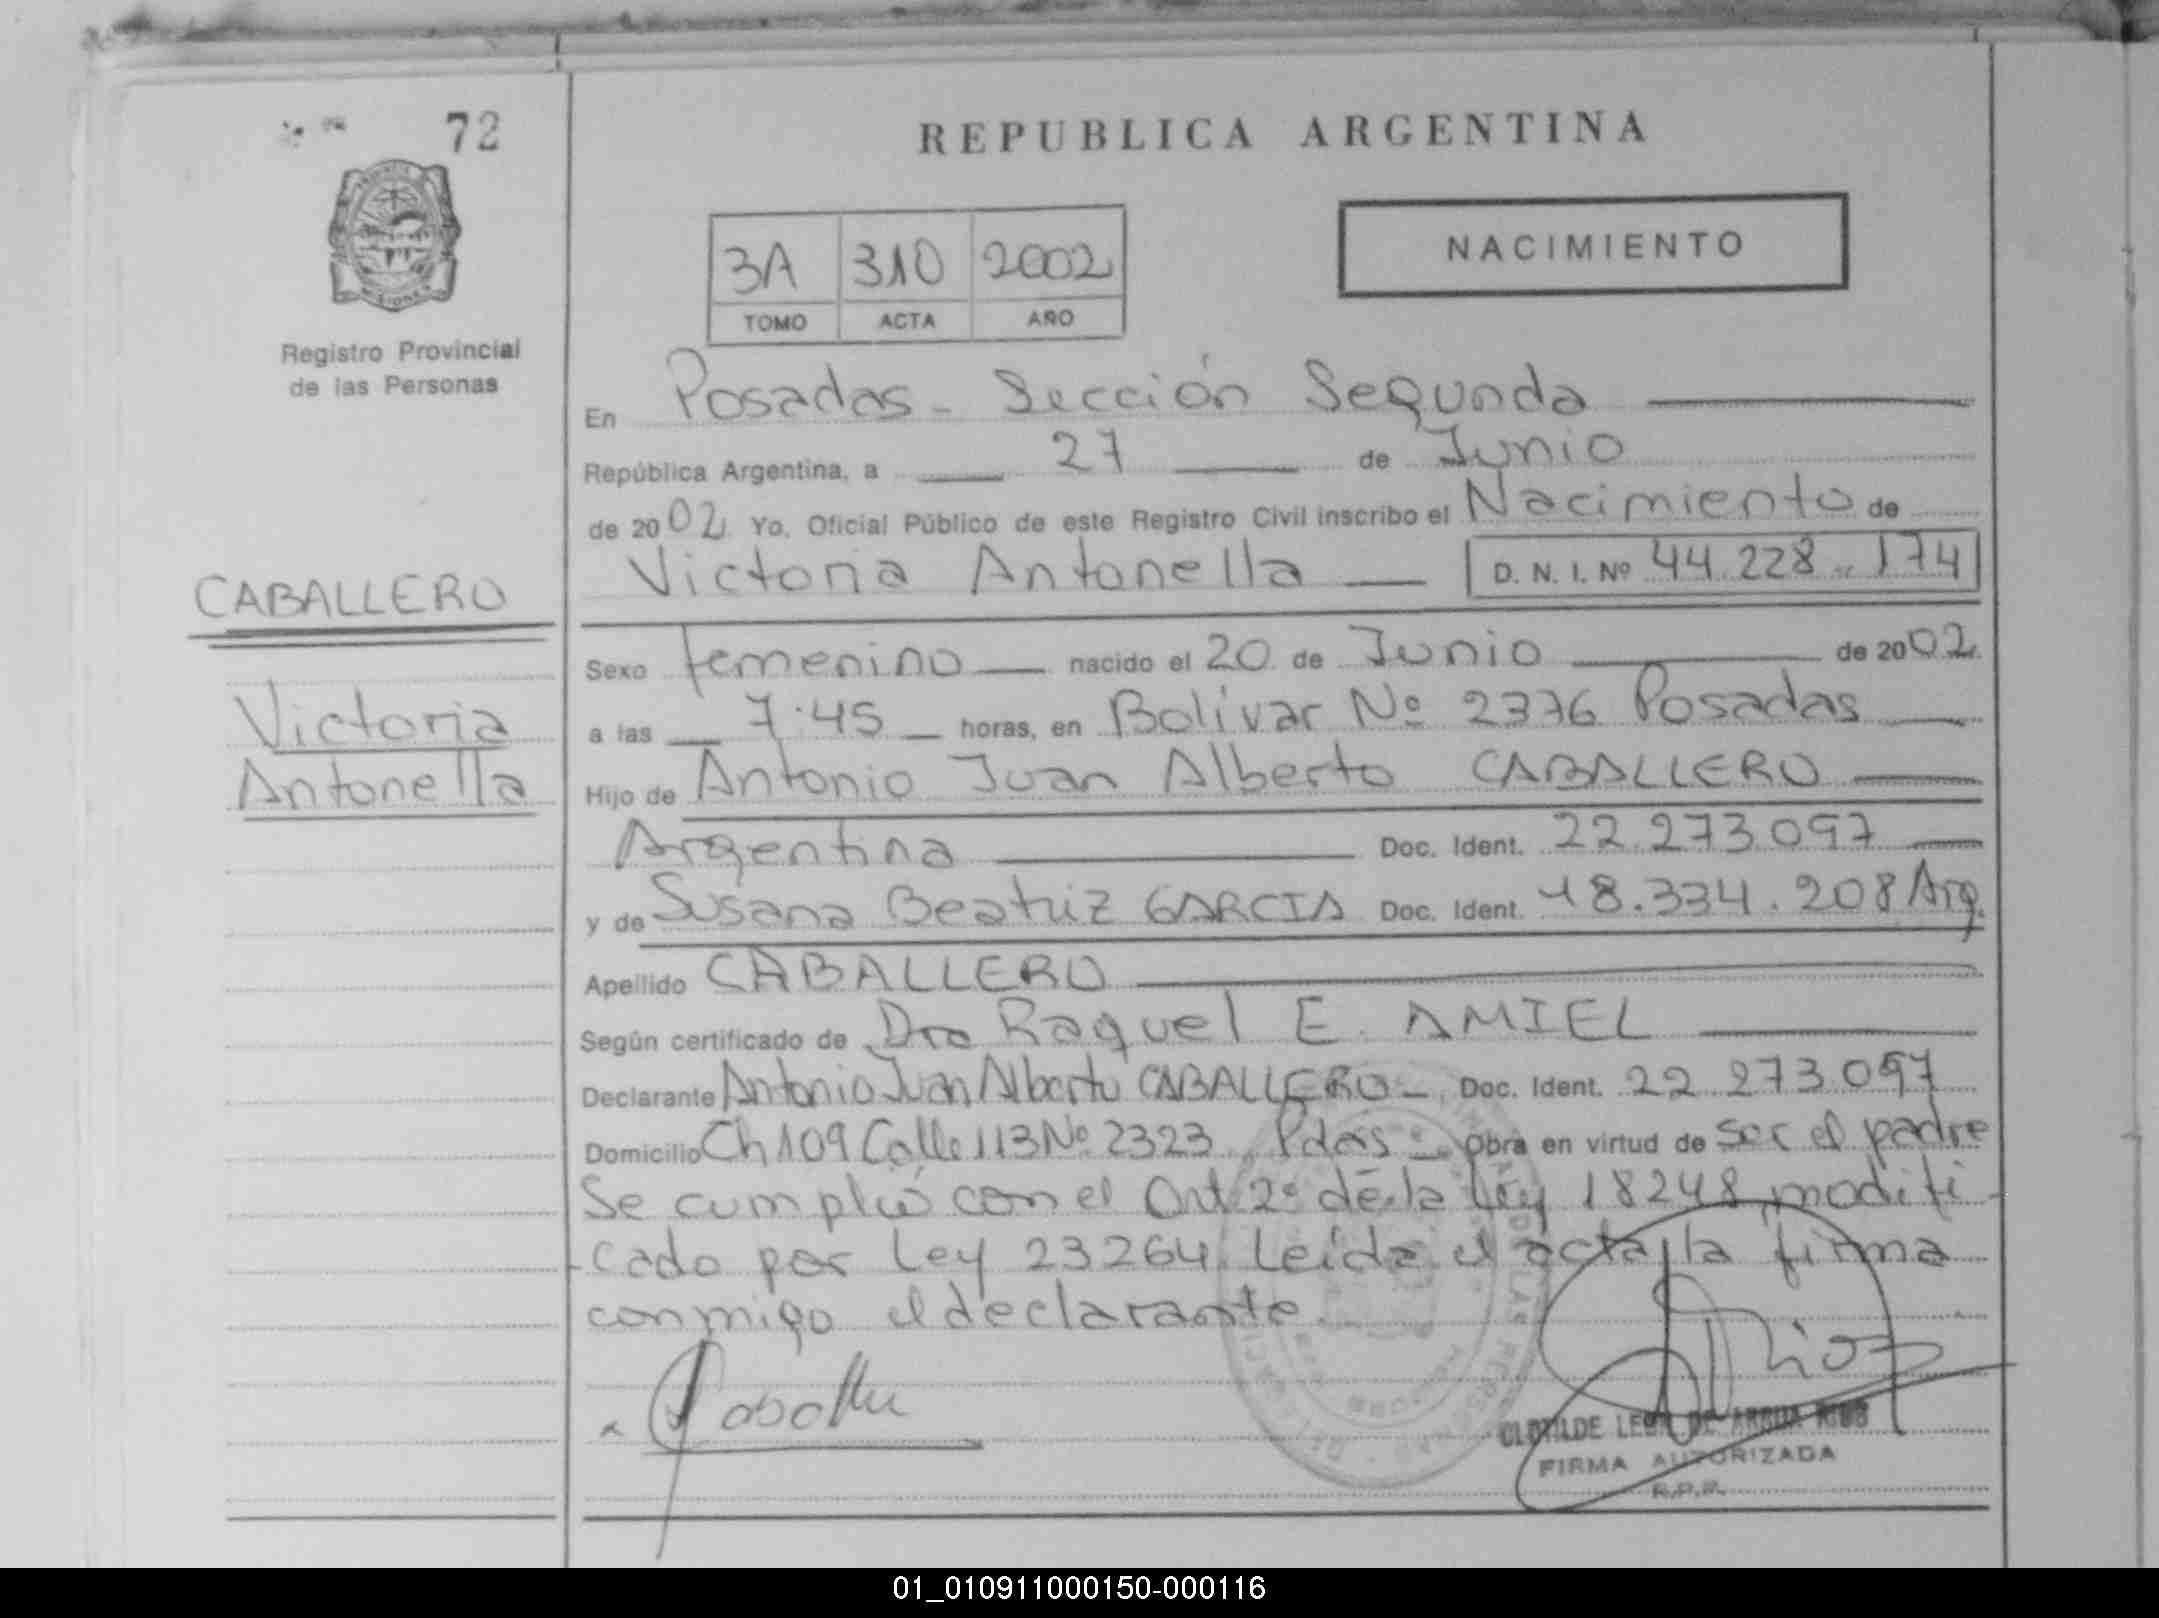 72
REPUBLICA ARGENTINA
3A 310 2002
TOMO ACTA AÑO
NACIMIENTO
Registro Provincial
de las Personas
En Posadas - Sección Segunda
República Argentina, a 27 de Junio
de 2002 Yo, Oficial Público de este Registro Civil inscribo el Nacimiento de
Victoria Antonella D. N. I. Nº 44.228.174
CABALLERO
Victoria
Antonella
Sexo femenino nacido el 20 de Junio de 2002
a las 7:45 horas, en Bolívar Nº 2376 Posadas
Hijo de Antonio Juan Alberto CABALLERO
Argentina Doc. Ident. 22.273.097
y de Susana Beatriz GARCIA Doc. Ident. 18.334.208 Arg.
Apellido CABALLERO
Según certificado de Dra Raquel E. AMIEL
Declarante Antonio Juan Alberto CABALLERO - Doc. Ident. 22 273.097
Domicilio Ch 109 Calle 113 Nº 2323 Pdas - Obra en virtud de ser el padre
Se cumplió con el Art 2º de la Ley 18248 modifi
-cado por Ley 23264. Leída el acta, la firma
conmigo el declarante.
CLOTILDE LEON DE ARRUA RIOS
FIRMA AUTORIZADA
R.P.P.
01_010911000150-000116